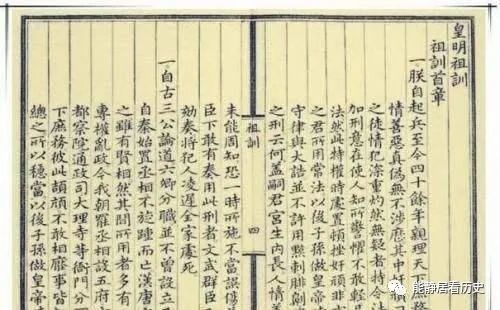 皇明祖訓
祖訓首章
一朕自起兵至今四十餘年親理天下庶務
情善惡真偽無不涉歷其中奸頑
之徒情犯深重灼然無疑者特令法
加刑意在使人知所警懼不敢輕易
法然此特權時處置頓挫奸頑非
之君所用常法以後子孫做皇帝
守律與大誥並不許用黥刺
之刑云何蓋嗣君宮生內長人情善
祖訓
四
未能周知恐一時所施不當誤傷
臣下敢有奏用此刑者文武群臣
劾奏將犯人凌遲全家處死
一自古三公論道六卿分職並不曾設立
自秦始置丞相不旋踵而亡漢唐
之雖有賢相然其間所用者多有
專權亂政今我朝罷丞相設五府
都察院通政司大理寺等衙門分
下庶務彼此頡頏不敢相壓事皆
總之所以穩當以後子孫做皇帝時
能靜居看历史